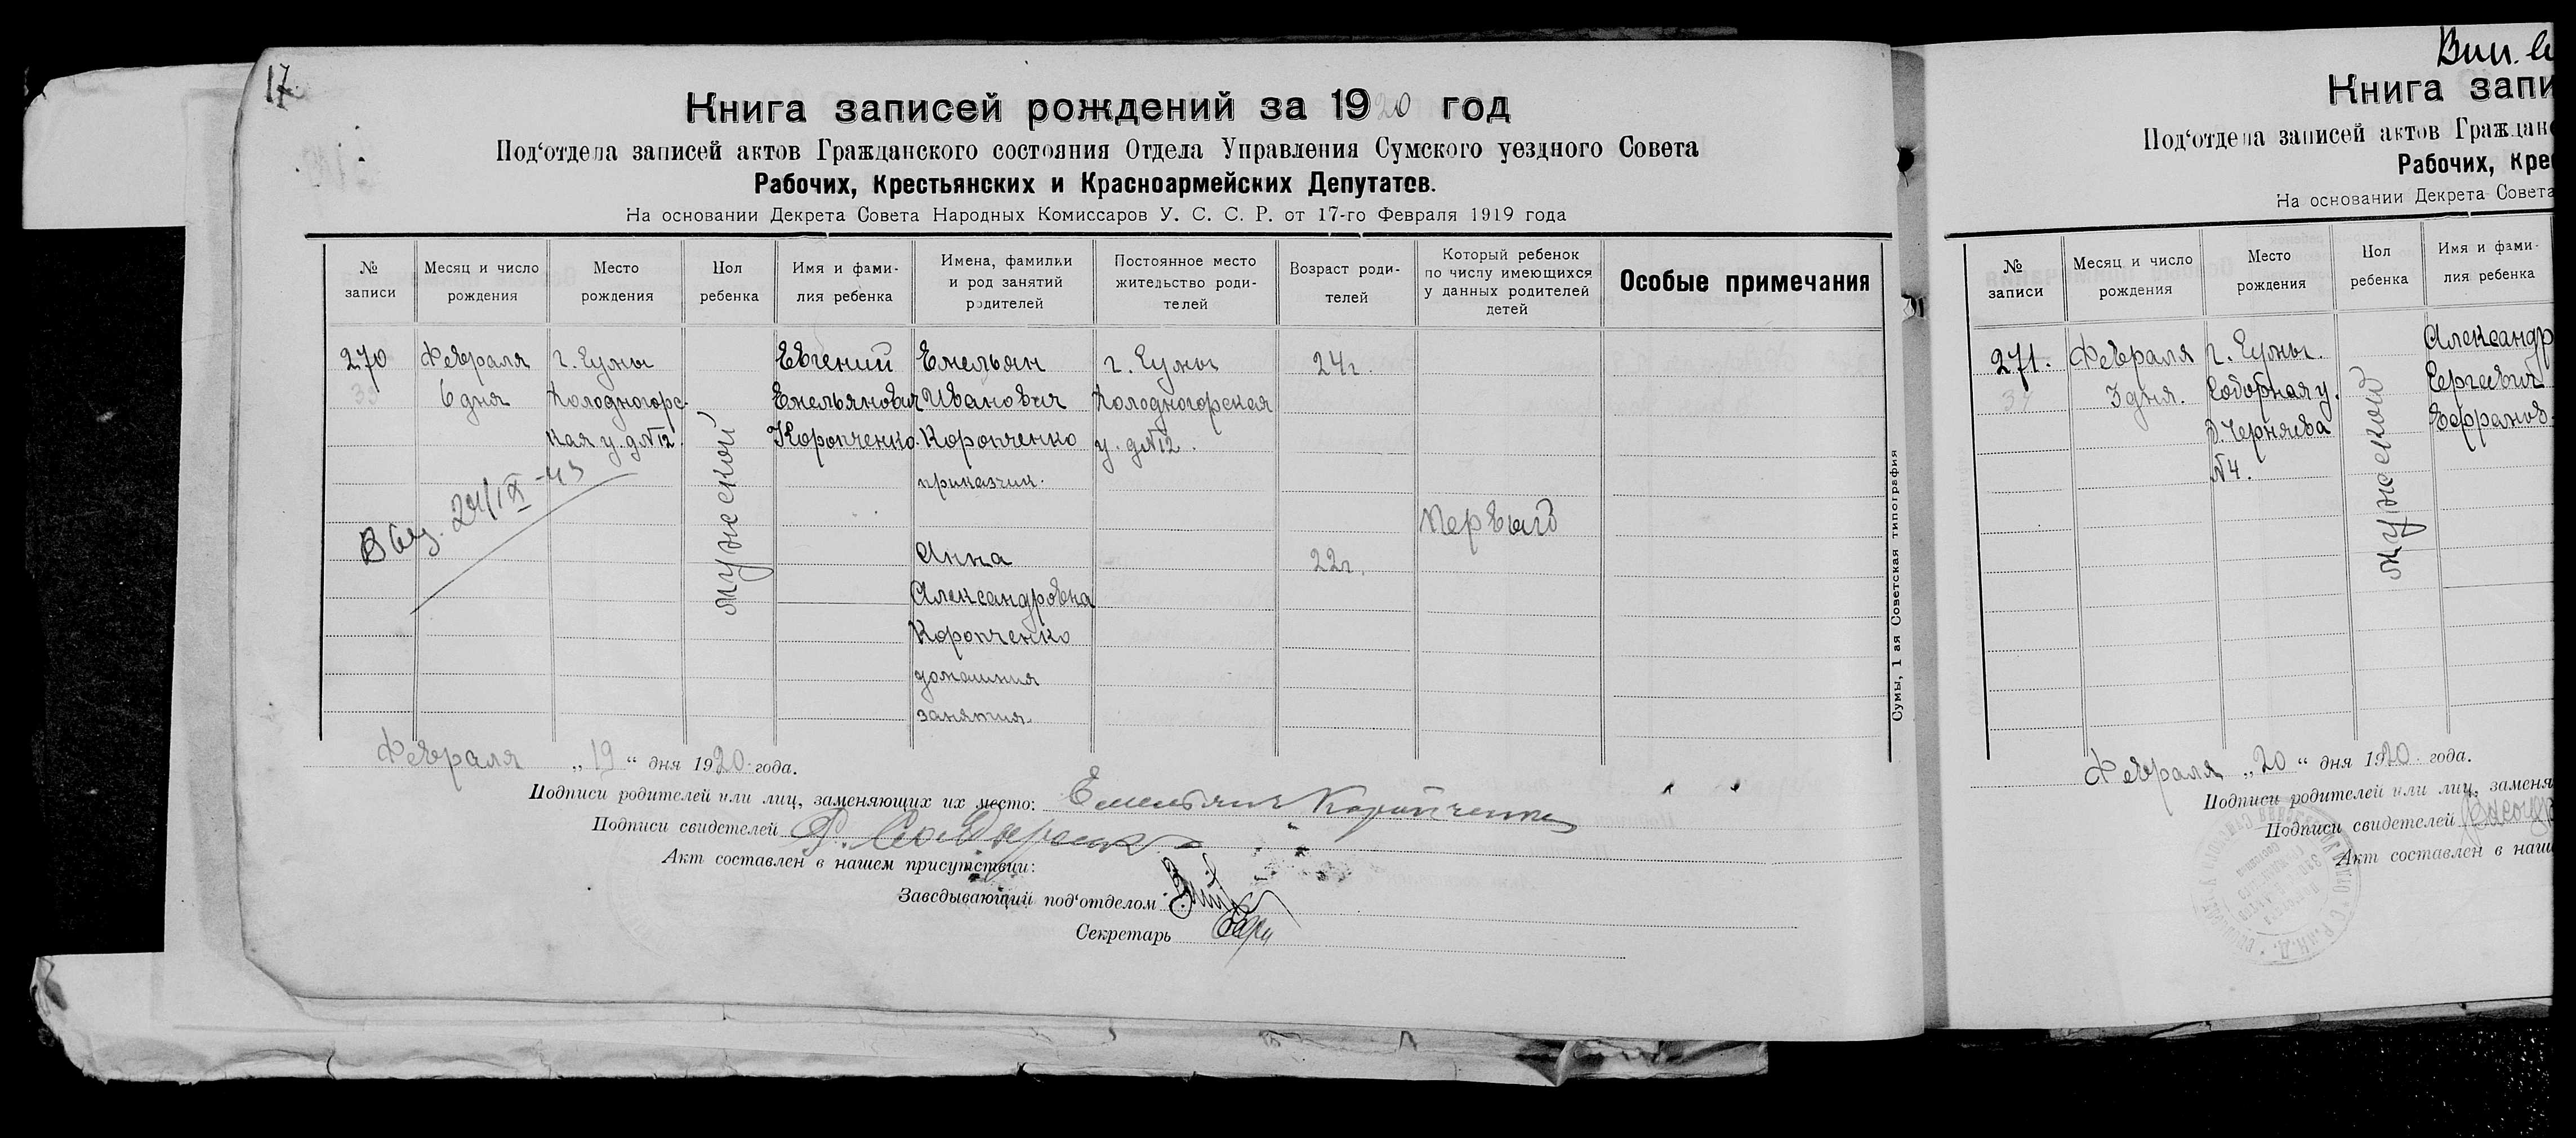 17.
Книга записей рождений за 1920 год
Под‘отдела записей актов Гражданского состояния Отдела Управления Сумского уездного Совета
Рабочих, Крестьянских и Красноармейских Депутатов.
На основании Декрета Совета Народных Комиссаров У. С. С. Р. от 17-го Февраля 1919 года
№ записи
Месяц и число рождения
Место рождения
Пол ребенка
Имя и фами-
лия ребенка
Имена, фамилки
и род занятий
родителей
Постоянное место
жительство роди-
телей
Возраст роди-
телей
Который ребенок
по числу имеющихся
у данных родителей
детей
Особые примечания
270
Февраля
6 дня
г. Сумы
Холодногорс-
кая у. д№12.
мужеской
Евгений
Емельянович
Коропченко.
Емельян
Иванович
Коропченко
приказчик.
Анна
Александровна
Коропченко
домашния
занятия.
г. Сумы
Холодногорская
у. д№12.
24г.
22г.
Первый
24/IX-43
Февраля „19“ дня 1920 года.
Подписи родителей или лиц, заменяющих их место: Емельян Коропченко
Подписи свидетелей
Акт составлен в нашем присутствии:
Заведывающий под‘отделом
Секретарь
Сумы, 1 ая Советская типография
Книга запи
Под‘отдела записей актов Гражданс
Рабочих, Крес
На основании Декрета Совета
№ записи
Месяц и число рождения
Место рождения
Пол ребенка
Имя и фами-
лия ребенка
271.
Февраля
3 дня.
г. Сумы.
Соборная у.
д. Черняева
№4.
мужеской
Александр
Сергеевич
Февраля „20“ дня 1920 года.
Подписи родителей или лиц, заменя
Подписи свидетелей
Акт составлен в наш